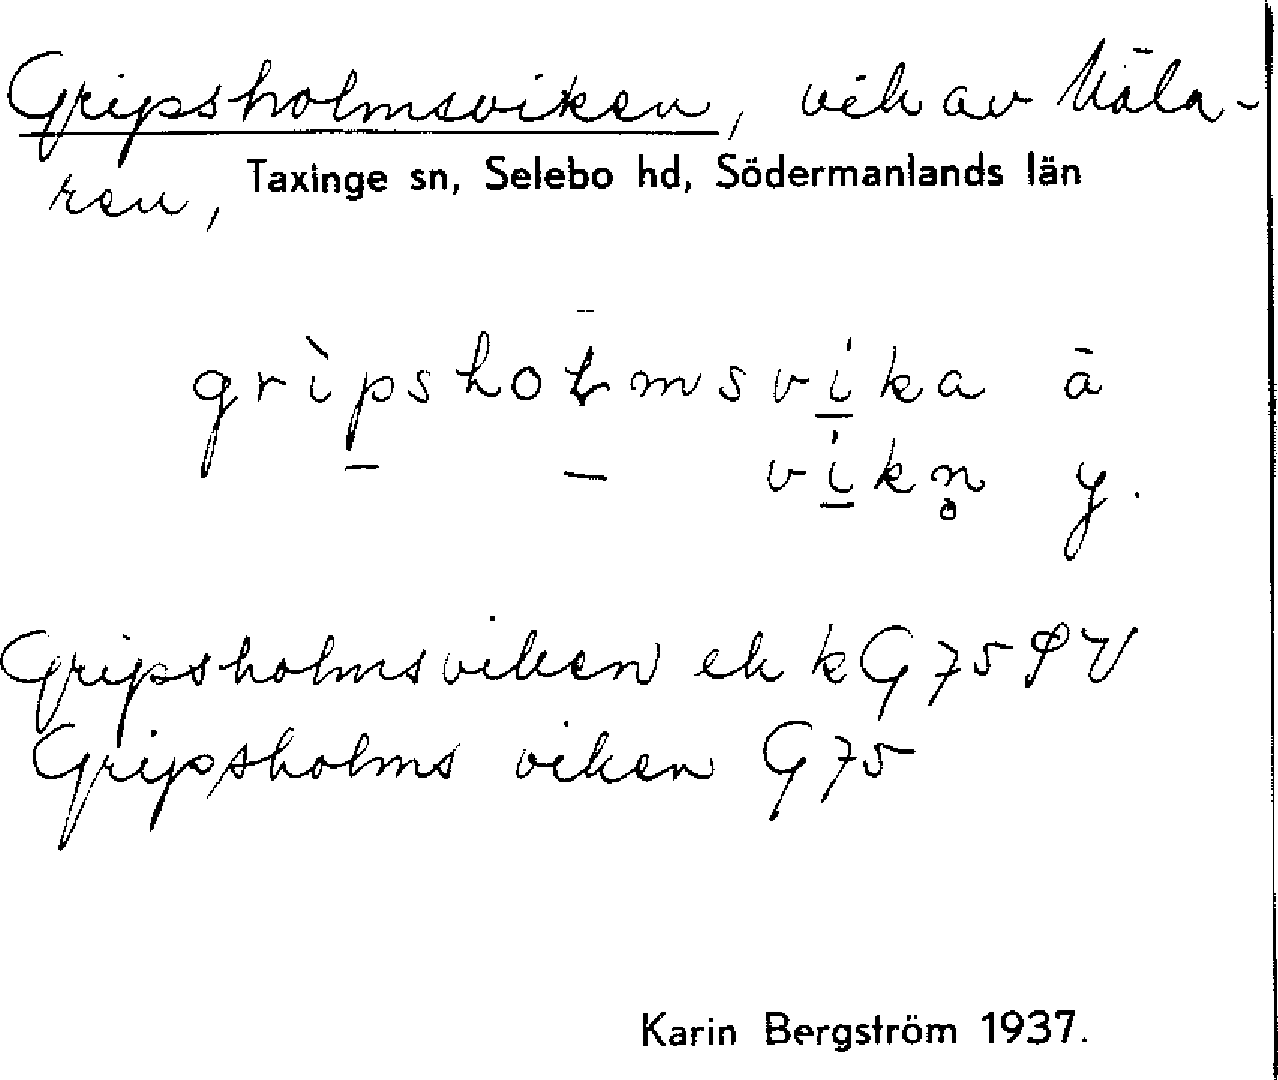 Gripsholmsviken, vik av Mäla-
ren, Taxinge sn, Selebo hd, Södermanlands län
grìpsholmsvika ä
— — vikn̥ y.
Gripsholmsviken ek k G 75 S V
Gripsholms viken G 75
Karin Bergström 1937.